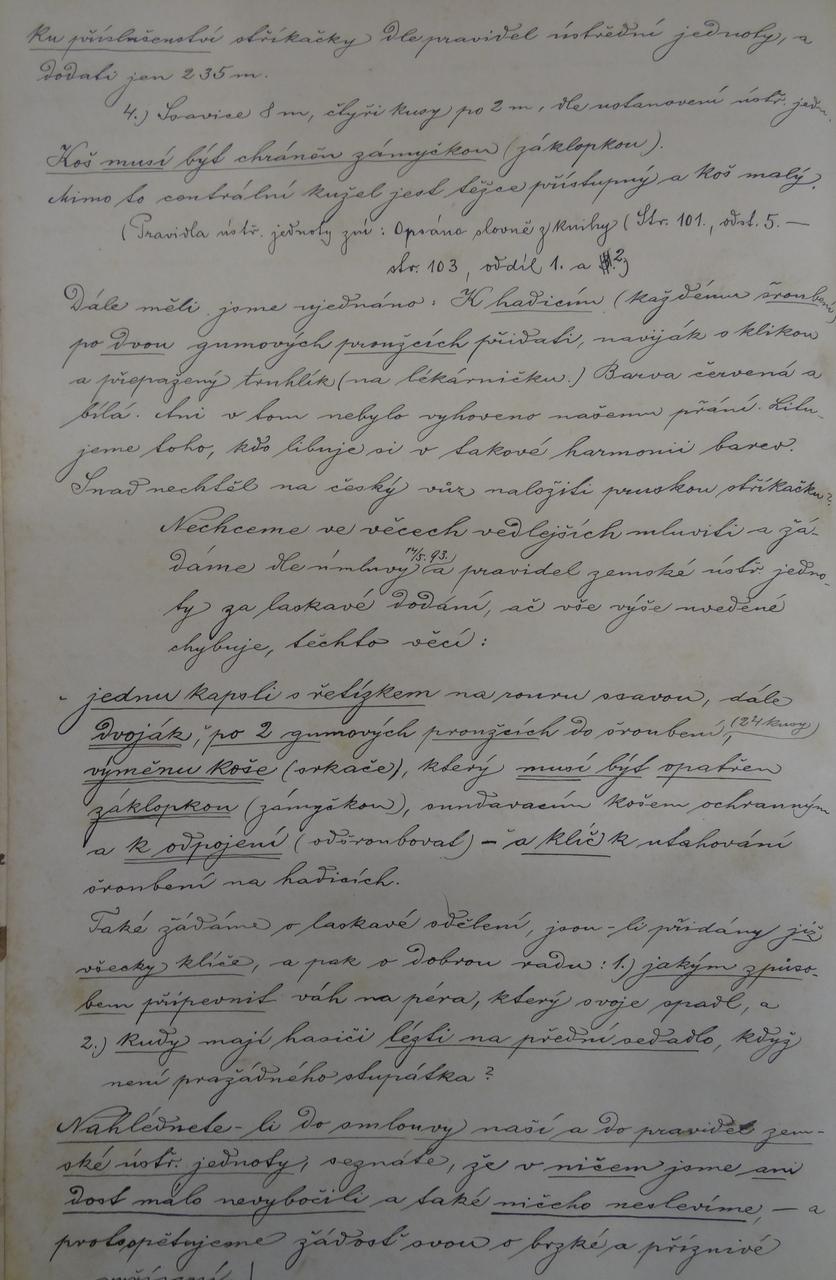 ku příslušenství stříkačky dle pravidel ústřední jednoty, a
dodati jen 235 m.
4.) Ssavice 8 m, čtyři kusy po 2 m, dle ustanovení ústř. jedn.
Koš musí být chráněn zámyčkou (záklopkou).
Mimo to centrální kužel jest těžce přístupný a koš malý.
(Pravidla ústř. jednoty zní: Opsáno slovně z knihy (Str. 101., odst. 5. —
str. 103, oddíl 1. a 2.)
Dále měli jsme ujednáno: K hadicím (každému šroubení
po dvou gumových proužcích přidati, naviják s klikou
a přepažený truhlík (na lékárničku.) Barva červená a
bílá. Ani v tom nebylo vyhoveno našemu přání. Litu-
jeme toho, kdo libuje si v takové harmonii barev.
Snad nechtěl na český vůz naložiti pruskou stříkačku?
Nechceme ve věcech vedlejších mluviti a žá-
dáme dle úmluvy 14/5. 93. a pravidel zemské ústř. jedno-
ty za laskavé dodání, ač vše výše uvedené
chybuje, těchto věcí:
jednu kapsli s řetízkem na rouru ssavou, dále
dvoják, po 2 gumových proužcích do šroubení, (24 kusy)
výměnu koše (srkače), který musí být opatřen
záklopkou (zámyčkou), sundavacím košem ochranným
a k odpojení (odšroubovat) – a klíč k utahování
šroubení na hadicích.
Také žádáme o laskavé sdělení, jsou-li přidány již
všecky klíče, a pak o dobrou radu: 1.) jakým způso-
bem připevnit váh na péra, který svoje spadl, a
2.) kudy mají hasiči lézti na přední sedadlo, když
není pražádného stupátka?
Nahlédnete-li do smlouvy naší a do pravidel zem-
ské ústř. jednoty, seznáte, že v ničem jsme ani
dost málo nevybočili a také ničeho neslevíme, — a
proto opětujeme žádost svou o brzké a příznivé